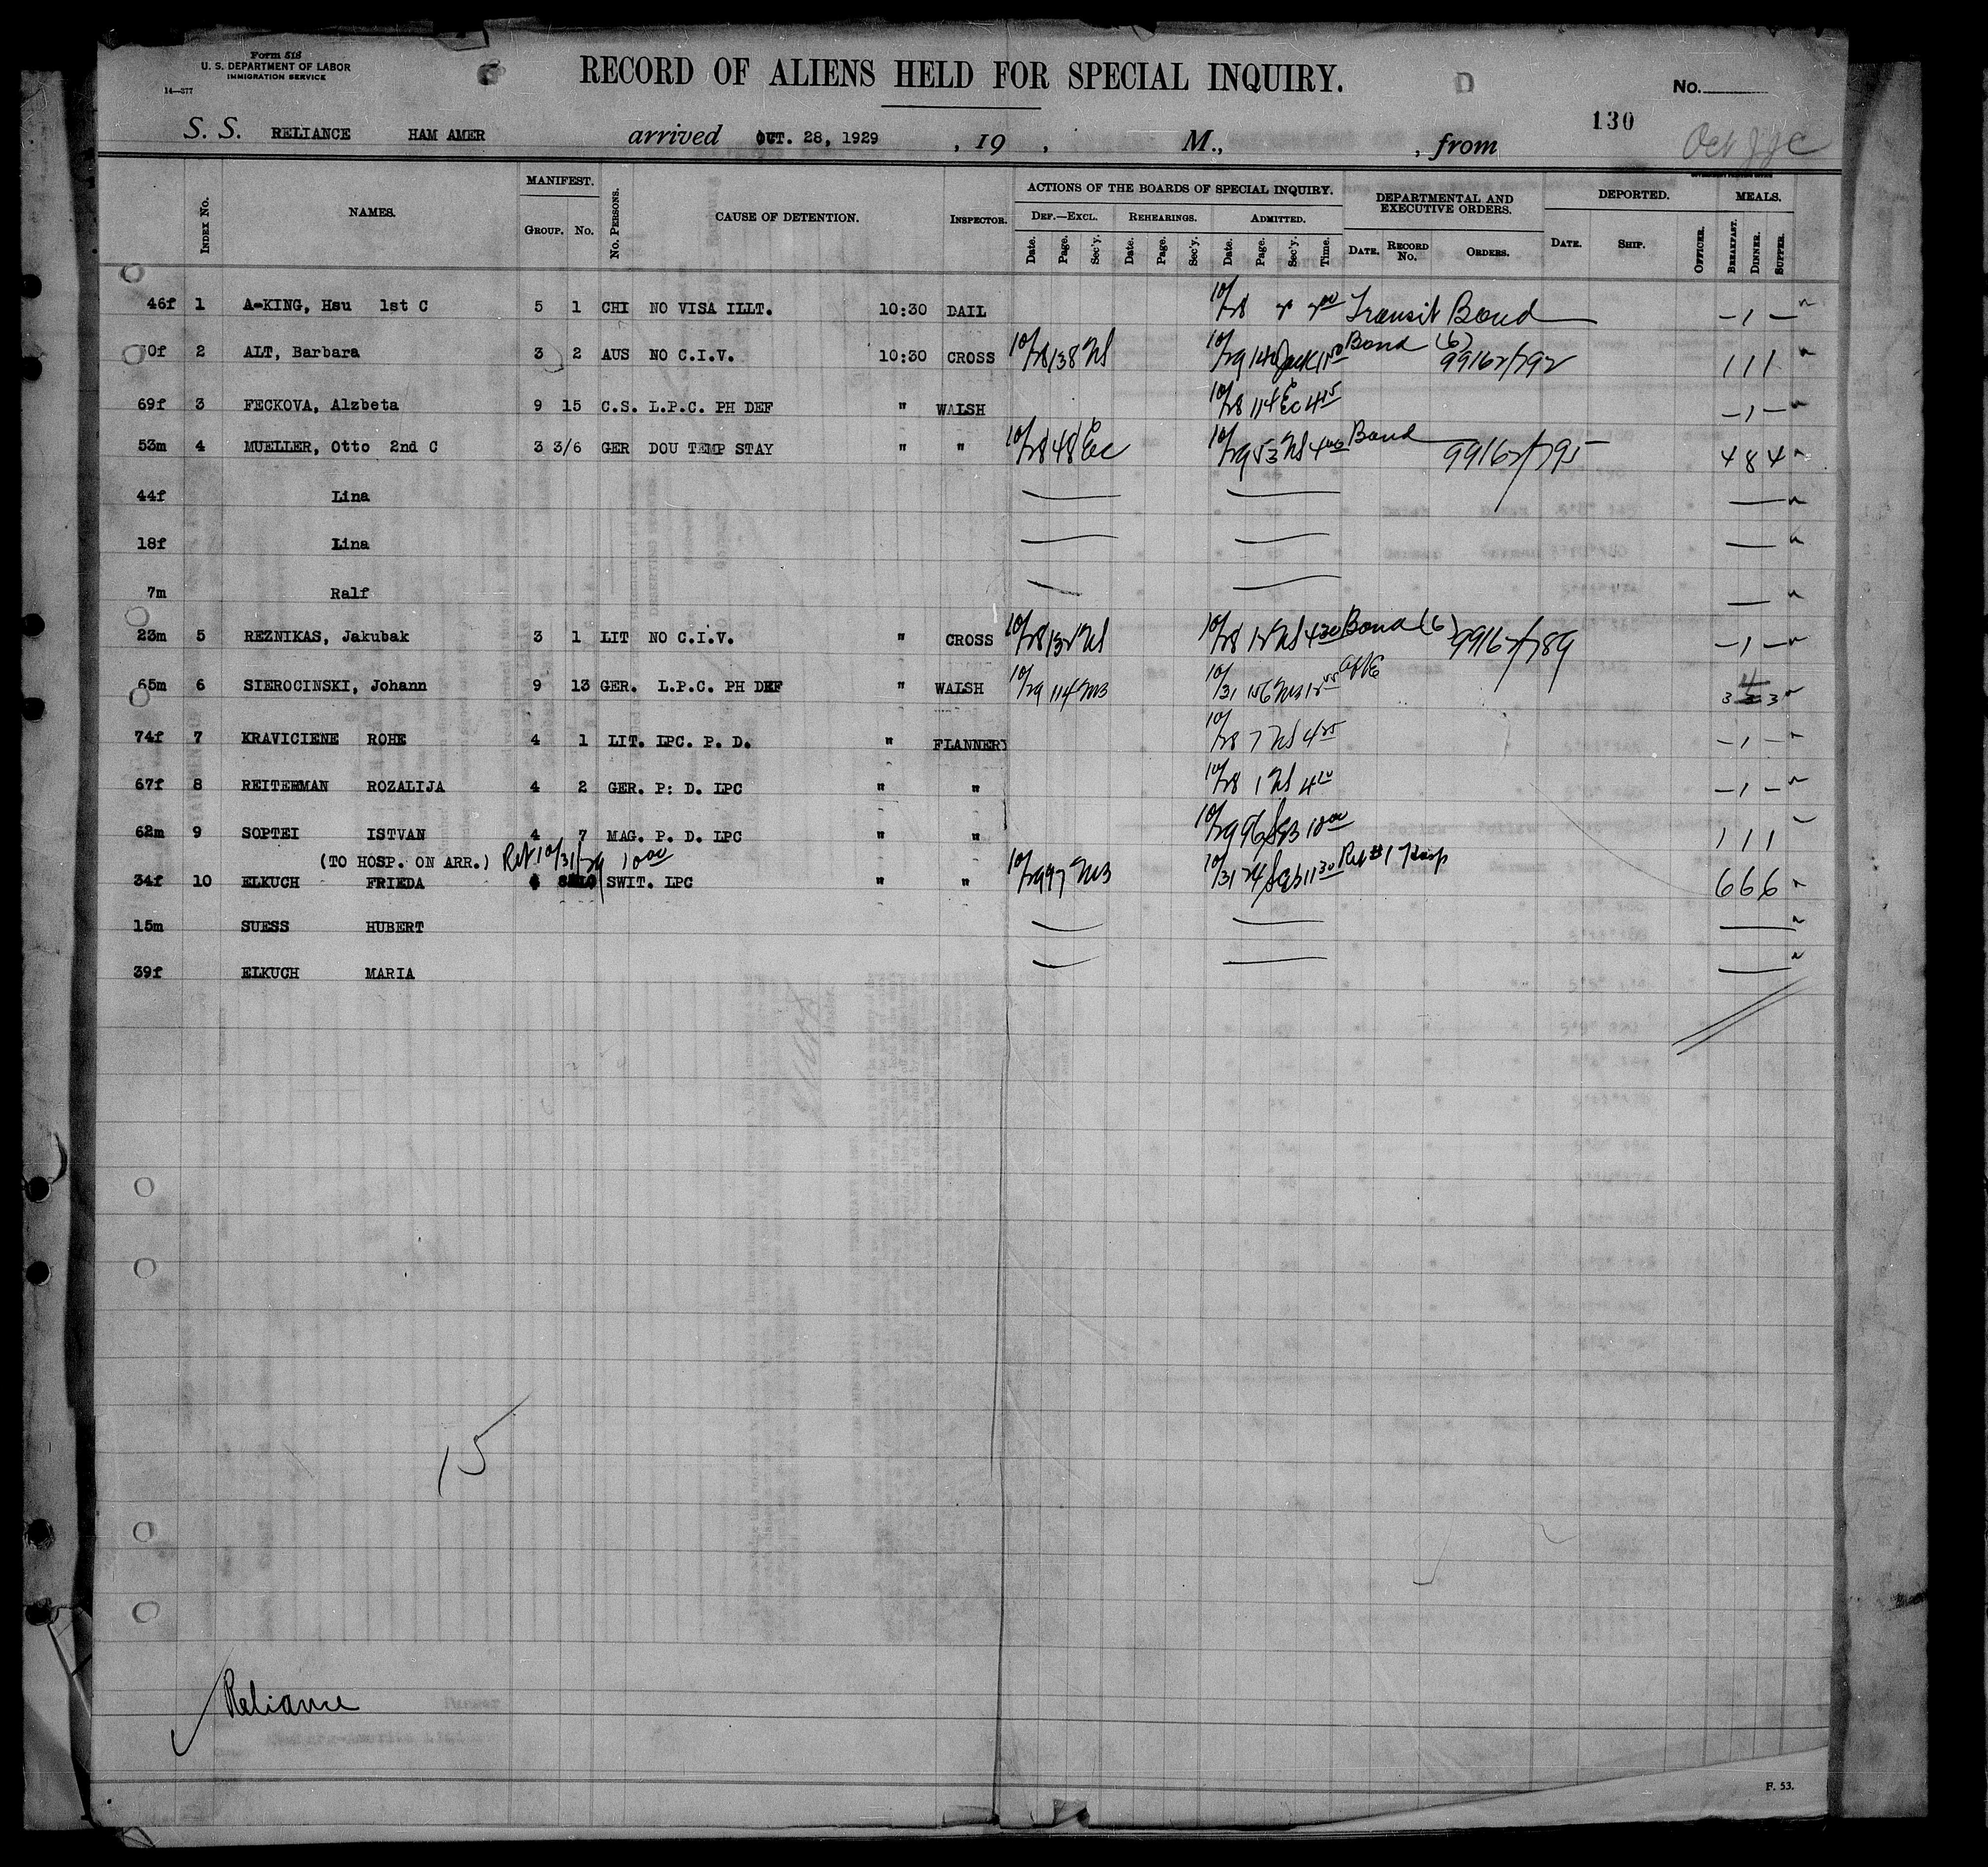 Form 518
U. S. DEPARTMENT OF LABOR
IMMIGRATION SERVICE
14—377
RECORD OF ALIENS HELD FOR SPECIAL INQUIRY.
D
No.
130
S. S. RELIANCE HAM AMER arrived OCT. 28, 1929 , 19 , M., , from
Oct
MANIFEST. ACTIONS OF THE BOARDS OF SPECIAL INQUIRY. DEPARTMENTAL AND EXECUTIVE ORDERS. DEPORTED. MEALS.
Index No. NAMES. Group. No. No. Persons. CAUSE OF DETENTION. Inspector. Def.—Excl. Rehearings. Admitted.
Date. Page. Sec'y. Date. Page. Sec'y. Date. Page. Sec'y. Time. Date. Record No. Orders. Date. Ship. Officer. Breakfast. Dinner. Supper.
46f 1 A-KING, Hsu 1st C 5 1 CHI NO VISA ILLT. 10:30 DAIL 10/28 Transit Bond – 1 –
2 ALT, Barbara 3 2 AUS NO C.I.V. 10:30 CROSS 10/28 138 10/29 Bond (6) 99162/792 1 1 1
69f 3 FECKOVA, Alzbeta 9 15 C.S. L.P.C. PH DEF " WALSH 10/28 114 Ec 4 15 – 1 –
53m 4 MUELLER, Otto 2nd C 3 3/6 GER DOU TEMP STAY " " 10/28 48 Ec 10/29 53 Bond 99162/795 4 8 4
44f Lina
18f Lina
7m Ralf
23m 5 REZNIKAS, Jakubak 3 1 LIT NO C.I.V. " CROSS 10/28 132 10/28 12 4 30 Bond (6) 99162/789 – 1 –
65m 6 SIEROCINSKI, Johann 9 13 GER. L.P.C. PH DEF " WALSH 10/29 114 MB 10/31 3 3
74f 7 KRAVICIENE ROHE 4 1 LIT. LPC. P. D. " FLANNERY 10/28 7 – 1 –
67f 8 REITERMAN ROZALIJA 4 2 GER. P: D. LPC " " 10/28 1 – 1 –
62m 9 SOPTEI ISTVAN 4 7 MAG. P. D. LPC " " 10/29 96 10 00 1 1 1
(TO HOSP. ON ARR.) Ret 10/31/29 10 00
34f 10 ELKUCH FRIEDA SWIT. LPC " " 10/29 97 MB 10/31 11 30 Ret #1 Hosp 6 6 6
15m SUESS HUBERT
39f ELKUCH MARIA
15
Reliance
F. 53.